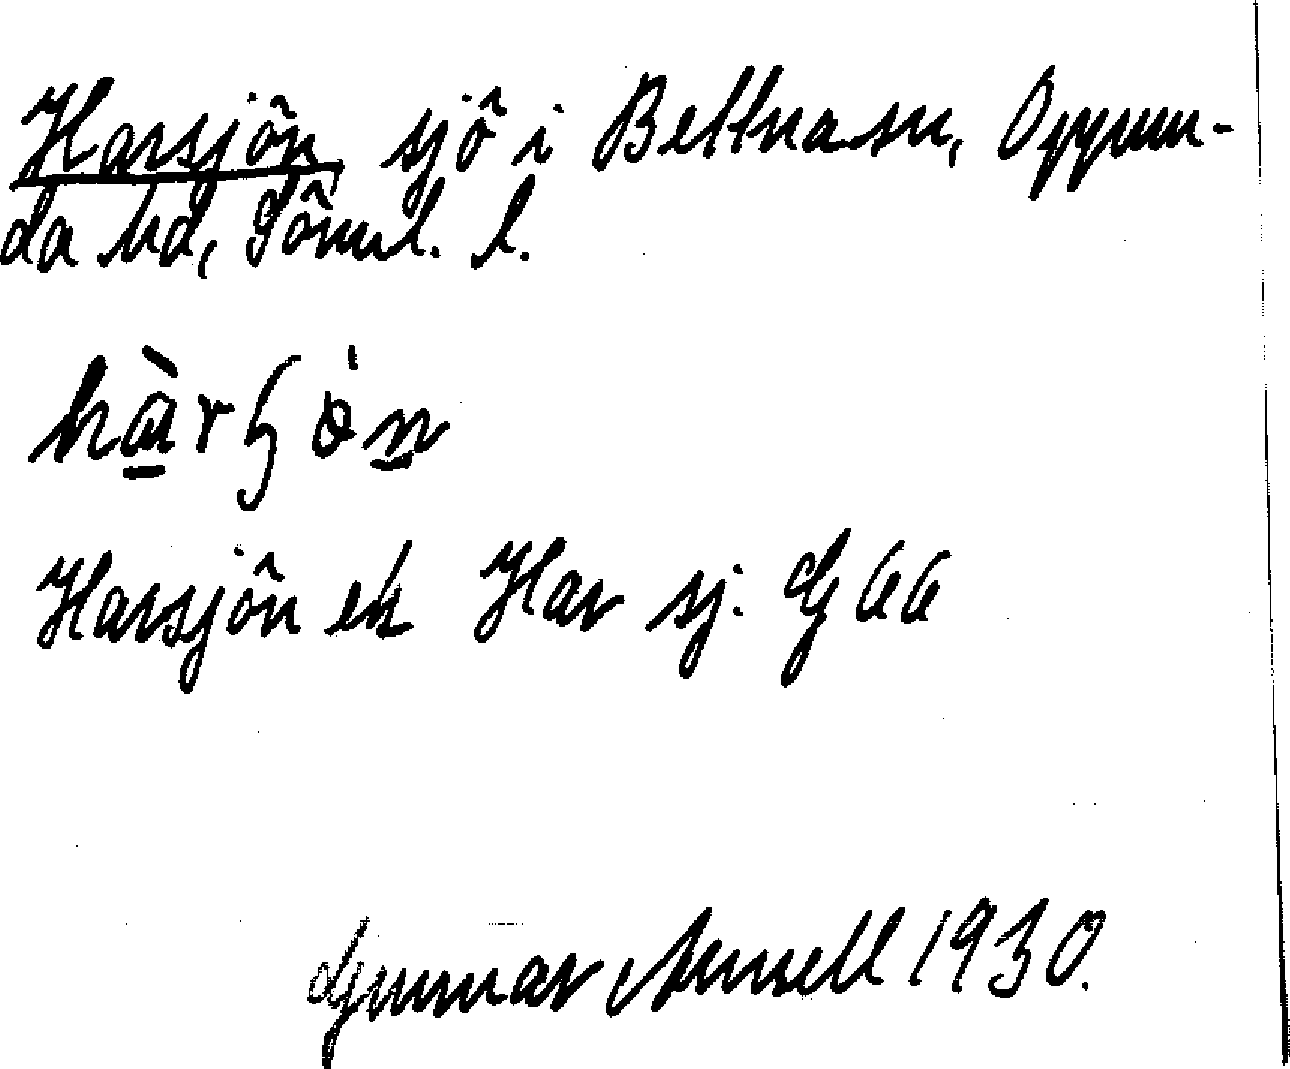 Harsjön, sjö i Bettnasn, Oppun-
da hd, Söml. l.
hàrʃön
Harsjön ek Har sj. G 66
Gunnar Arnell 1930.